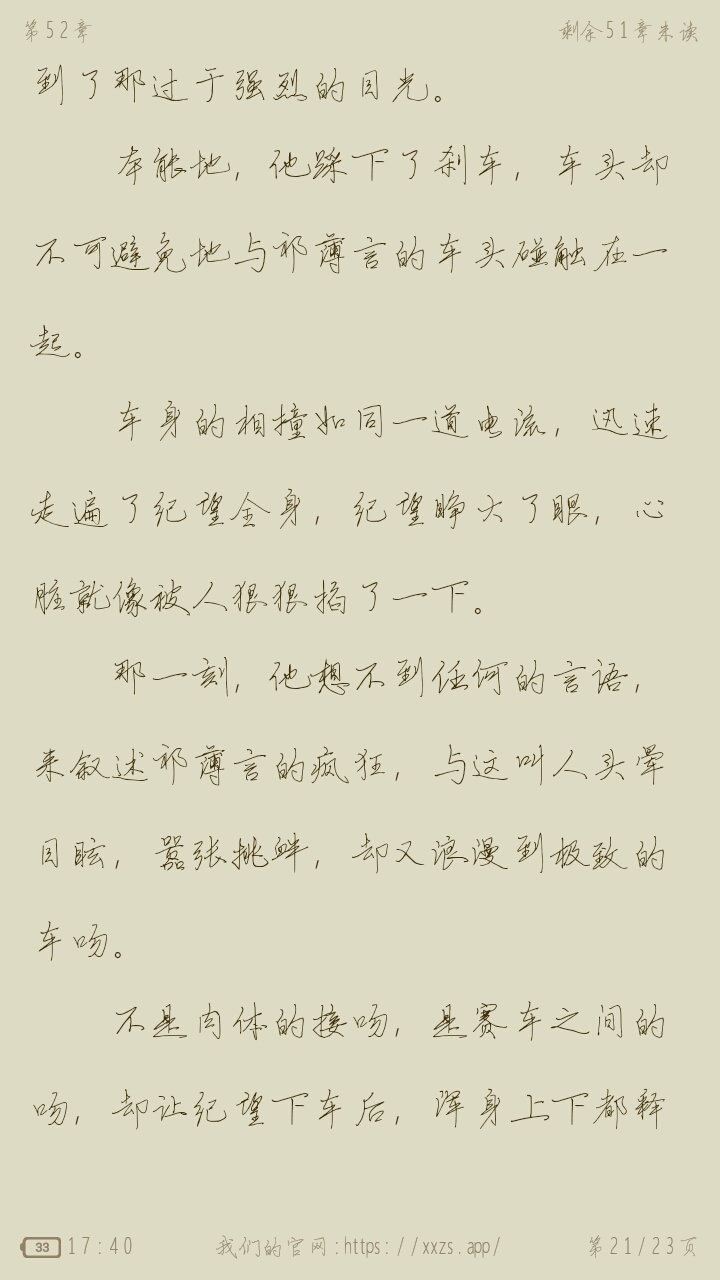 第52章 剩余51章未读
到了那过于强烈的目光。
本能地，他踩下了刹车，车头却
不可避免地与祁薄言的车头碰触在一
起。
车身的相撞如同一道电流，迅速
走遍了纪望全身，纪望睁大了眼，心
脏就像被人狠狠掐了一下。
那一刻，他想不到任何的言语，
来叙述祁薄言的疯狂，与这叫人头晕
目眩，嚣张挑衅，却又浪漫到极致的
车吻。
不是肉体的接吻，是赛车之间的
吻，却让纪望下车后，浑身上下都释
33 17:40 我们的官网:https://xxzs.app/ 第21/23页